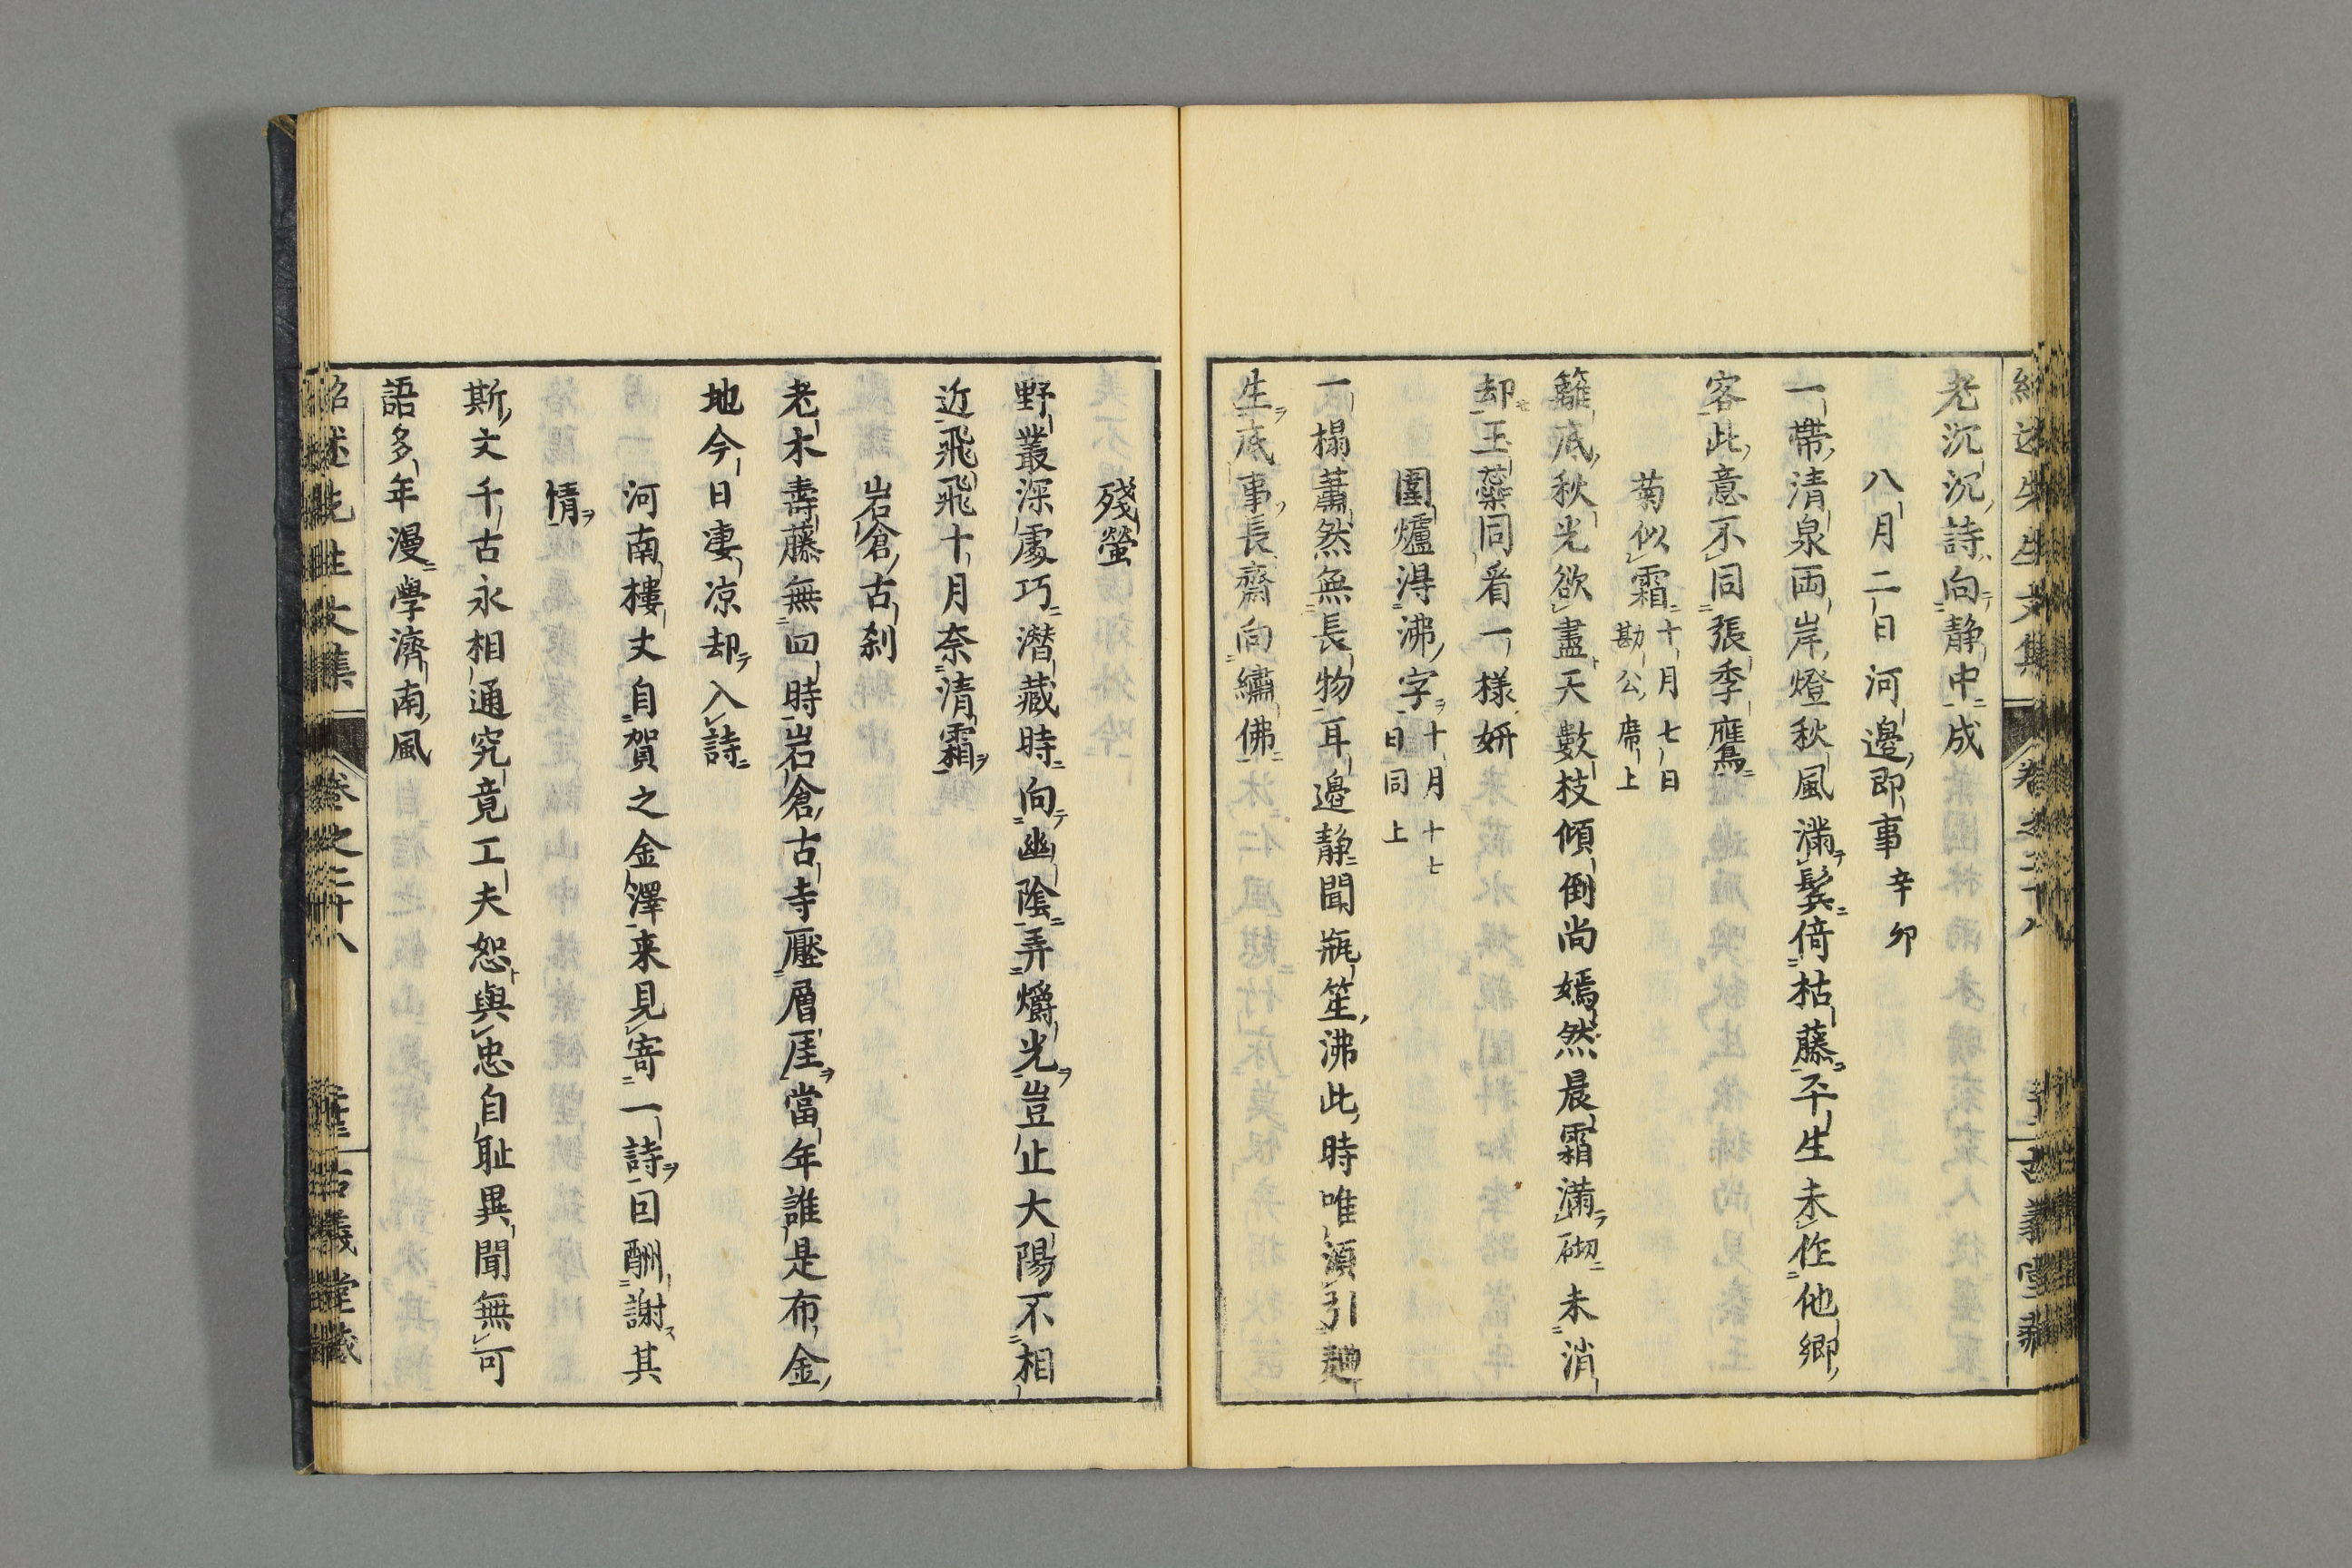 老沉沉詩向静中成
八月二日河邊即事 辛卯
一帶清泉両岸燈秋風滿鬓倚枯藤平生未作他鄉
客此意不同張季鷹
菊似霜 十月七日勘公席上
籬底秋光欲盡天數枝傾倒尚嫣然晨霜滿砌未消
却玉蘂同看一樣妍
圍爐得沸字 十月十七日同上
一榻蕭然無長物耳邊静聞瓶笙沸此時唯須引
生底事長齋向繡佛
殘螢
野叢深處巧潛藏時向幽陰弄爝光豈止大陽不相
近飛飛十月奈清霜
岩倉古刹
老木壽藤無四時岩倉古寺壓層厓當年誰是布金
地今日凄凉却入詩
河南樓丈自賀之金澤来見寄一詩回酬謝其
情
斯文千古永相通究竟工夫恕與忠自耻異聞無可
語多年漫學濟南風
紹述先生文集 卷之二十八 古義堂藏